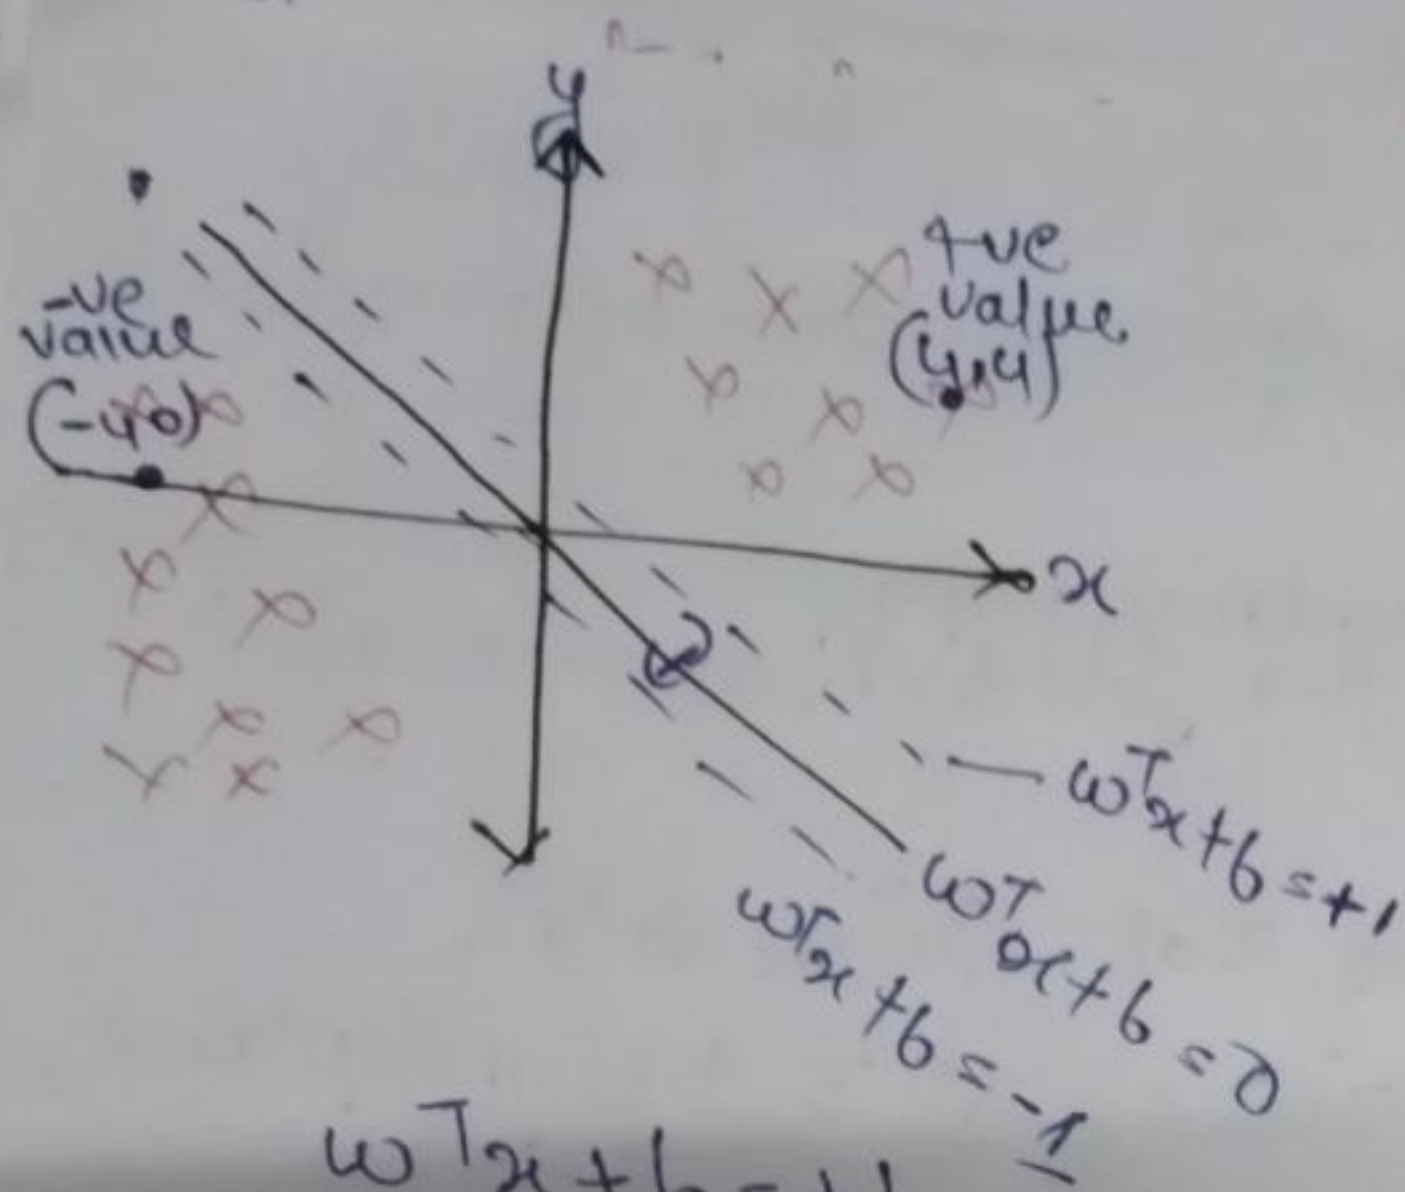 y
+ve
value
(4,4)
-ve
value
(-4,0)
x
ωᵀx+b=+1
ωᵀx+b=0
ωᵀx+b=-1